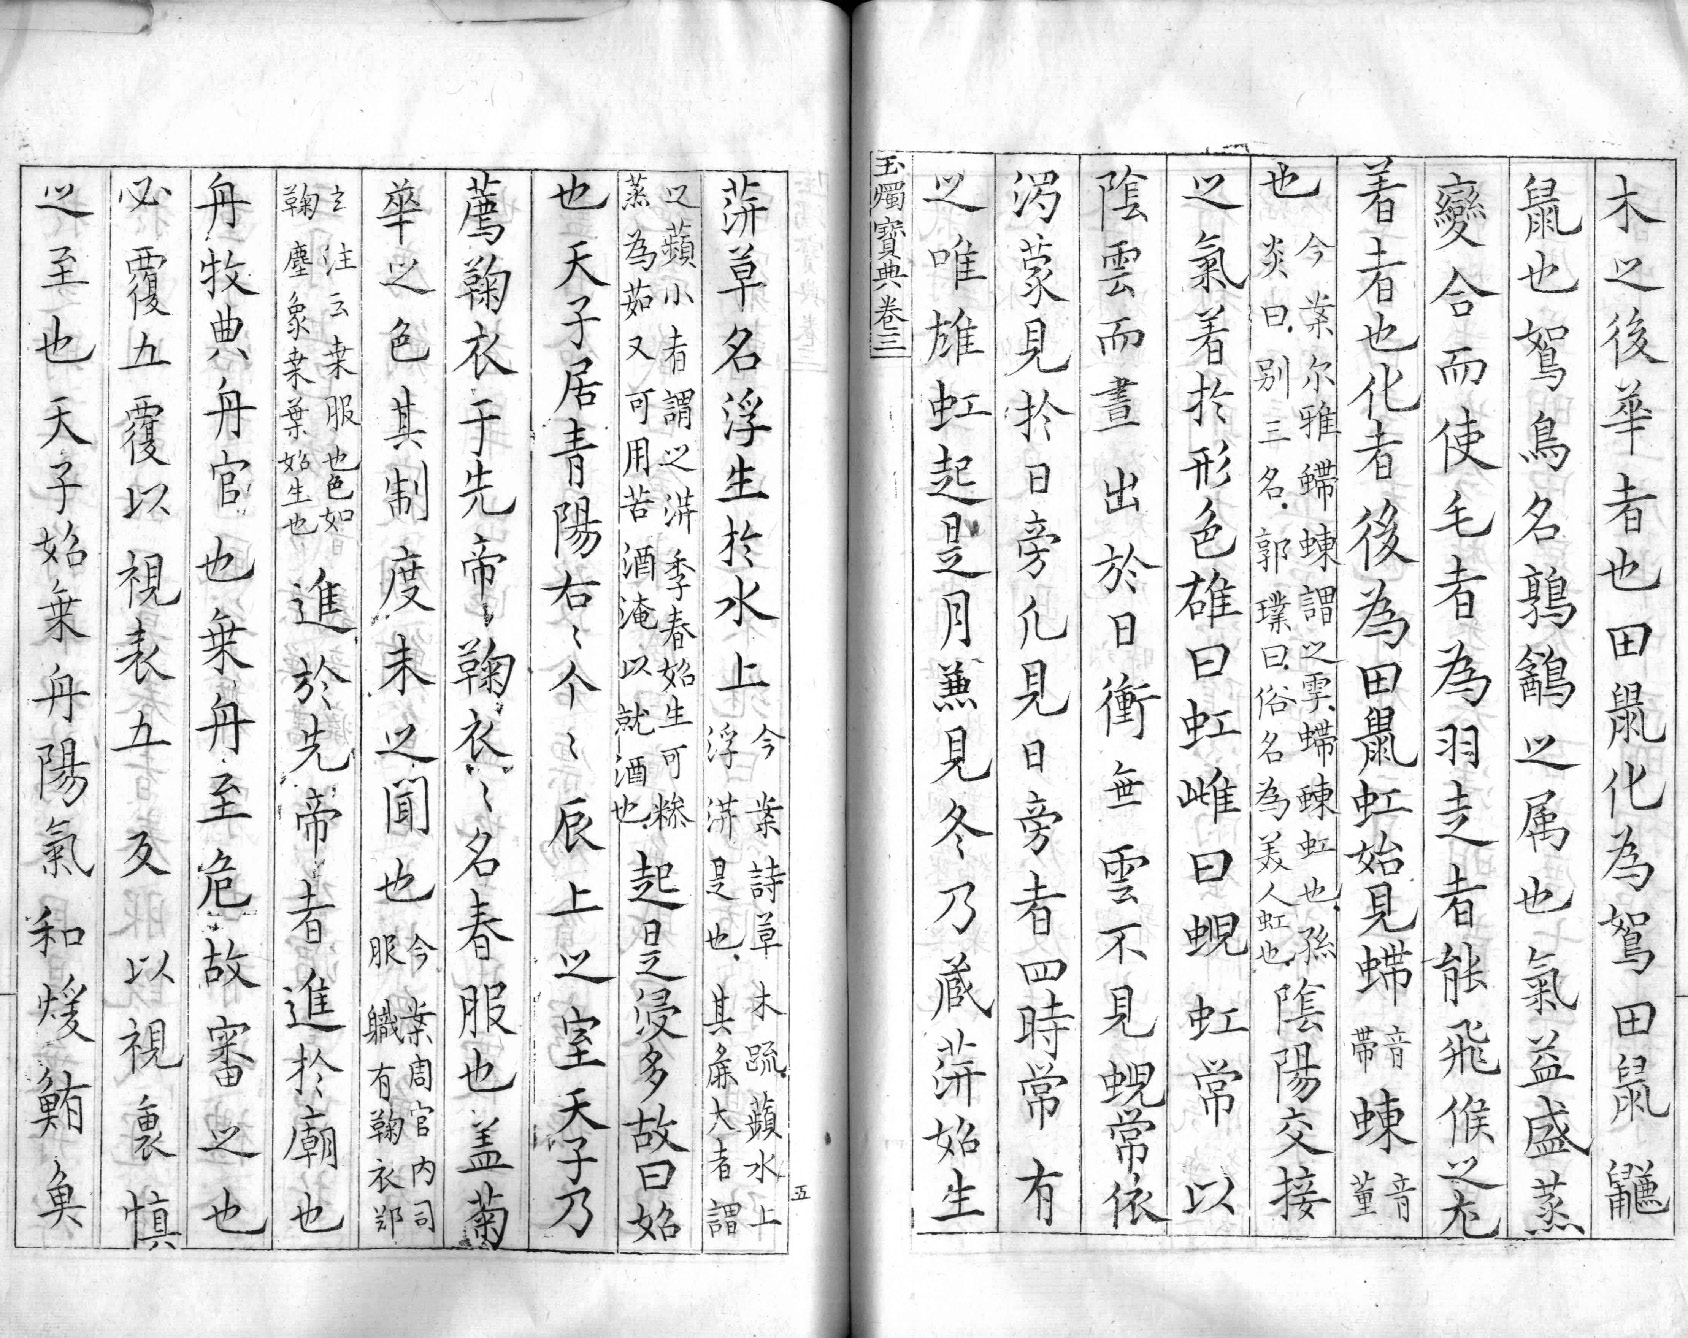 木之後華者也田鼠化為鴽田鼠鼸
鼠也鴽鳥名鶉鷂之属也氣益盛蒸
變合而使毛者為羽走者能飛候之尤
著者也化者後為田鼠虹始見螮音帶蝀音董
也今葉尔雅螮蝀謂之雩螮蝀虹也孫
炎曰別三名郭璞曰俗名為美人虹也陰陽交接
之氣着於形色雄曰虹雌曰蜺虹常以
陰雲而晝出於日衝無雲不見蜺常依
濁蒙見於日旁凡見日旁者四時常有
之唯雄虹起是月藂見冬乃蔵蓱始生
玉燭寶典卷三
蓱草名浮生於水上今葉詩草木疏蘋水上
浮洴是也其麁大者謂
之蘋小者謂之洴季春始生可糝
蒸為茹又可用苦酒淹以就酒也起是浸多故曰始
也天子居青陽右〻个〻辰上之室天子乃
薦鞠衣于先帝〻鞠衣〻名春服也盖菊
華之色其制度未之聞也今葉周官内司
服職有鞠衣鄭
玄注云桒服也色如
鞠塵象桒葉始生也進於先帝者進於廟也
舟牧典舟官也乗舟至危故審之也
必覆五覆以視表五反以視裏慎
之至也天子始乗舟陽氣和煖鮪魚
五